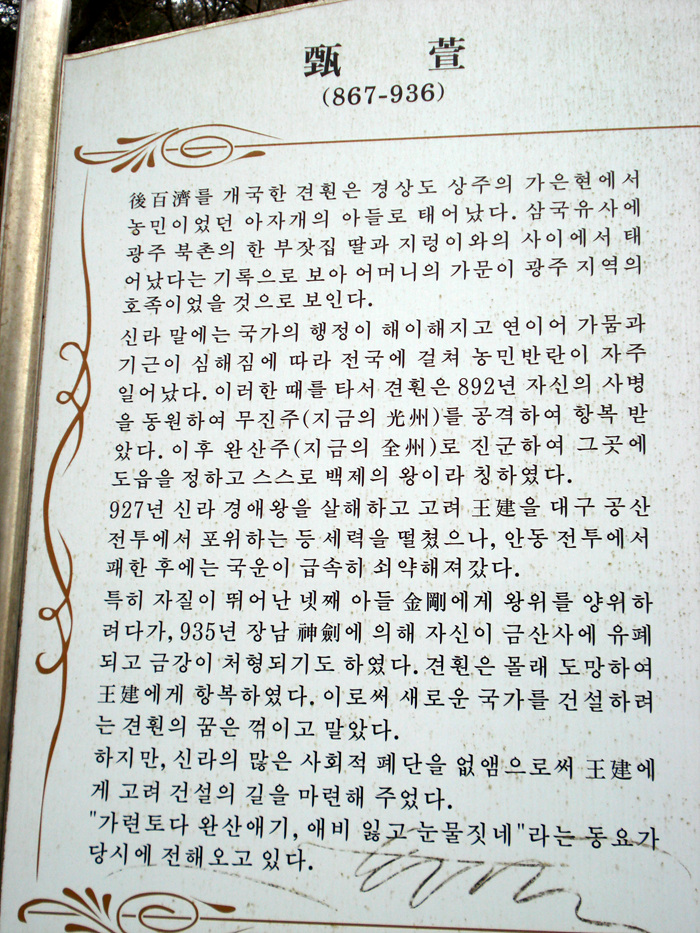 甄 萱
(867-936)
後百濟를 개국한 견훤은 경상도 상주의 가은현에서
농민이었던 아자개의 아들로 태어났다. 삼국유사에
광주 북촌의 한 부잣집 딸과 지렁이와의 사이에서 태
어났다는 기록으로 보아 어머니의 가문이 광주 지역의
호족이었을 것으로 보인다.
신라 말에는 국가의 행정이 해이해지고 연이어 가뭄과
기근이 심해짐에 따라 전국에 걸쳐 농민반란이 자주
일어났다. 이러한 때를 타서 견훤은 892년 자신의 사병
을 동원하여 무진주(지금의 光州)를 공격하여 항복 받
았다. 이후 완산주(지금의 全州)로 진군하여 그곳에
도읍을 정하고 스스로 백제의 왕이라 칭하였다.
927년 신라 경애왕을 살해하고 고려 王建을 대구 공산
전투에서 포위하는 등 세력을 떨쳤으나, 안동 전투에서
패한 후에는 국운이 급속히 쇠약해져갔다.
특히 자질이 뛰어난 넷째 아들 金剛에게 왕위를 양위하
려다가, 935년 장남 神劍에 의해 자신이 금산사에 유폐
되고 금강이 처형되기도 하였다. 견훤은 몰래 도망하여
王建에게 항복하였다. 이로써 새로운 국가를 건설하려
는 견훤의 꿈은 꺾이고 말았다.
하지만, 신라의 많은 사회적 폐단을 없앰으로써 王建에
게 고려 건설의 길을 마련해 주었다.
"가련토다 완산애기, 애비 잃고 눈물짓네"라는 동요가
당시에 전해오고 있다.